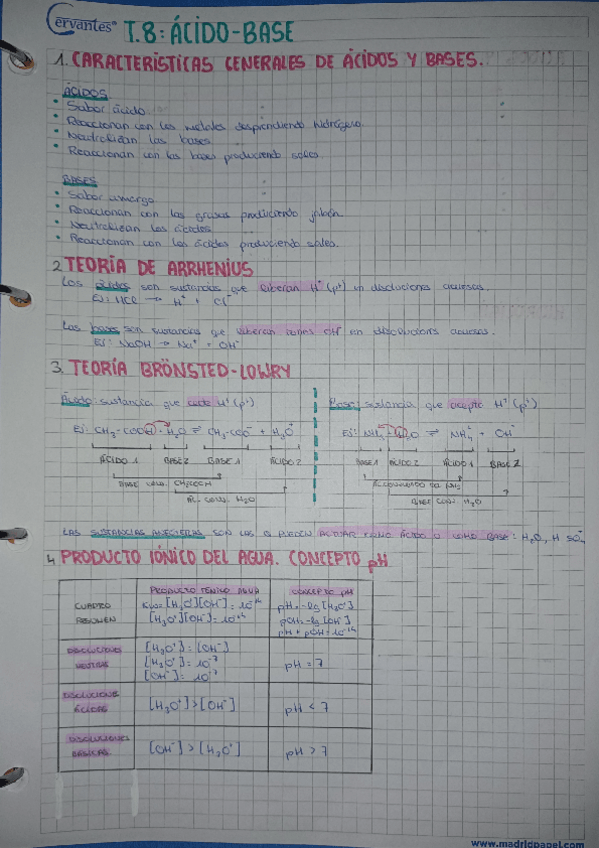 Cervantes®
T.8: ÁCIDO-BASE
1. CARACTERISTICAS GENERALES DE ÁCIDOS Y BASES.
ÁCIDOS
• Sabor ácido.
• Reaccionan con los metales desprendiendo hidrógeno.
• Neutralizan las bases
• Reaccionan con las bases produciendo sales.
BASES
• Sabor amargo
• Reaccionan con las grasas produciendo jabón.
• Neutralizan los ácidos
• Reaccionan con los ácidos produciendo sales.
2 TEORÍA DE ARRHENIUS
Los ácidos son sustancias que liberan H⁺ (p⁺) en disoluciones acuosas.
Ej: HCl → H⁺ + Cl⁻
Las bases son sustancias que liberan iones OH⁻ en disoluciones acuosas.
Ej: NaOH → Na⁺ + OH⁻
3. TEORÍA BRÖNSTED-LOWRY
Ácido: sustancia que cede H⁺ (p⁺)
Ej: CH₃-COOH + H₂O ⇌ CH₃-COO⁻ + H₃O⁺
ÁCIDO 1 BASE 2 BASE 1 ÁCIDO 2
BASE CONJ. CH₃COOH
ÁC. CONJ. H₂O
Base: sustancia que acepta H⁺ (p⁺)
Ej: NH₃ + H₂O ⇌ NH₄⁺ + OH⁻
BASE 1 ÁCIDO 2 ÁCIDO 1 BASE 2
NH₃
BASE CONJ. H₂O
LAS SUSTANCIAS SON LAS Q PUEDEN ACTUAR COMO ÁCIDO O COMO BASE: H₂O, H SO₄⁻
4. PRODUCTO IÓNICO DEL AGUA. CONCEPTO pH
PRODUCTO IÓNICO AGUA CONCEPTO pH
CUADRO RESUMEN
Kw = [H₃O⁺][OH⁻] = 10⁻¹⁴
[H₃O⁺][OH⁻] = 10⁻¹⁴
pH = -lg [H₃O⁺]
pOH = -lg [OH⁻]
pH + pOH = 10⁻¹⁴
DISOLUCIONES NEUTRAS
[H₃O⁺] = [OH⁻]
[H₃O⁺] = 10⁻⁷
[OH⁻] = 10⁻⁷
pH = 7
DISOLUCIONES ÁCIDAS
[H₃O⁺] > [OH⁻]
pH < 7
DISOLUCIONES BÁSICAS
[OH⁻] > [H₃O⁺]
pH > 7
www.madridpapel.com